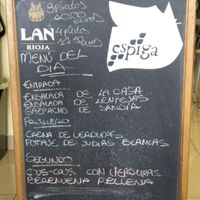 3 platos
10,00
LAN
RIOJA
espiga
MENÚ DEL
DIA
ENTRADA
ENSALADA DE LA CASA
ENSALADA DE LENTEJAS
GAZPACHO DE SANDÍA
PRIMERO
CREMA DE VERDURAS
POTAJE DE JUDIAS BLANCAS
SEGUNDO
CUS-CUS CON VERDURAS
BERENJENA RELLENA